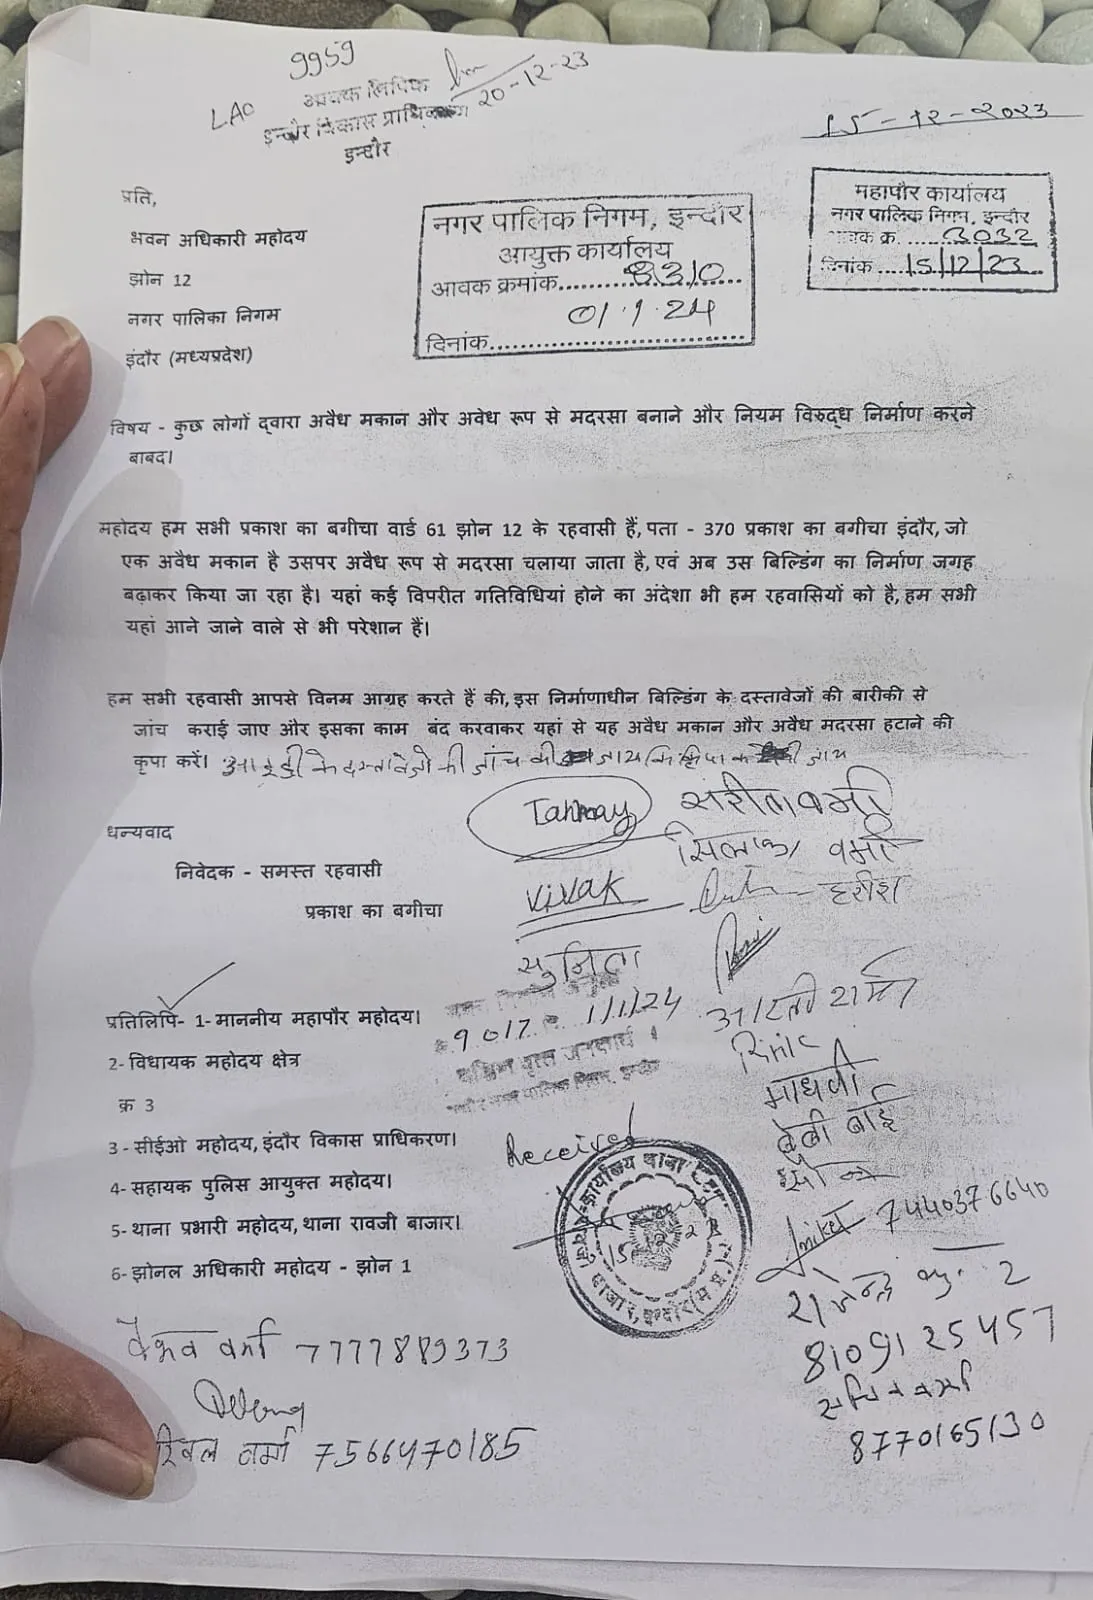 9959
LAO
20-12-23
आवक लिपिक
इन्दौर विकास प्राधिकरण
इन्दौर
15-12-2023
महापौर कार्यालय
नगर पालिक निगम, इन्दौर
आवक क्र. ......3032
दिनांक ....15/12/23
नगर पालिक निगम, इन्दौर
आयुक्त कार्यालय
आवक क्रमांक...........8310....
01.1.24
दिनांक..............................
प्रति,
भवन अधिकारी महोदय
झोन 12
नगर पालिका निगम
इंदौर (मध्यप्रदेश)
विषय - कुछ लोगों द्वारा अवैध मकान और अवेध रूप से मदरसा बनाने और नियम विरुद्ध निर्माण करने
बाबद।
महोदय हम सभी प्रकाश का बगीचा वार्ड 61 झोन 12 के रहवासी हैं, पता - 370 प्रकाश का बगीचा इंदौर, जो
एक अवैध मकान है उसपर अवैध रूप से मदरसा चलाया जाता है, एवं अब उस बिल्डिंग का निर्माण जगह
बढ़ाकर किया जा रहा है। यहां कई विपरीत गतिविधियां होने का अंदेशा भी हम रहवासियों को है, हम सभी
यहां आने जाने वाले से भी परेशान हैं।
हम सभी रहवासी आपसे विनम्र आग्रह करते हैं की, इस निर्माणाधीन बिल्डिंग के दस्तावेजों की बारीकी से
जांच कराई जाए और इसका काम बंद करवाकर यहां से यह अवैध मकान और अवैध मदरसा हटाने की
कृपा करें। आईडी के दस्तावेजो की जांच की जाय
Tanmay सरीता वर्मा
वर्मा
धन्यवाद
निवेदक - समस्त रहवासी
प्रकाश का बगीचा
Vivak
हरीश
सुनिता
प्रतिलिपि- 1- माननीय महापौर महोदय।
9017 1/1/24
आरती शर्मा
2- विधायक महोदय क्षेत्र
क्र 3
माधवी
बेबी बाई
3 - सीईओ महोदय, इंदौर विकास प्राधिकरण।
Received
4- सहायक पुलिस आयुक्त महोदय।
5- थाना प्रभारी महोदय, थाना रावजी बाजार।
6- झोनल अधिकारी महोदय - झोन 1
कार्यालय थाना
बाजार, इन्दौर (म.प्र.)
15-12-2
Aniket 7440376640
राजेन्द्र
8109125457
वैभव वर्मा 7777889373
सचिन वर्मा
8770165130
वर्मा 7566470185